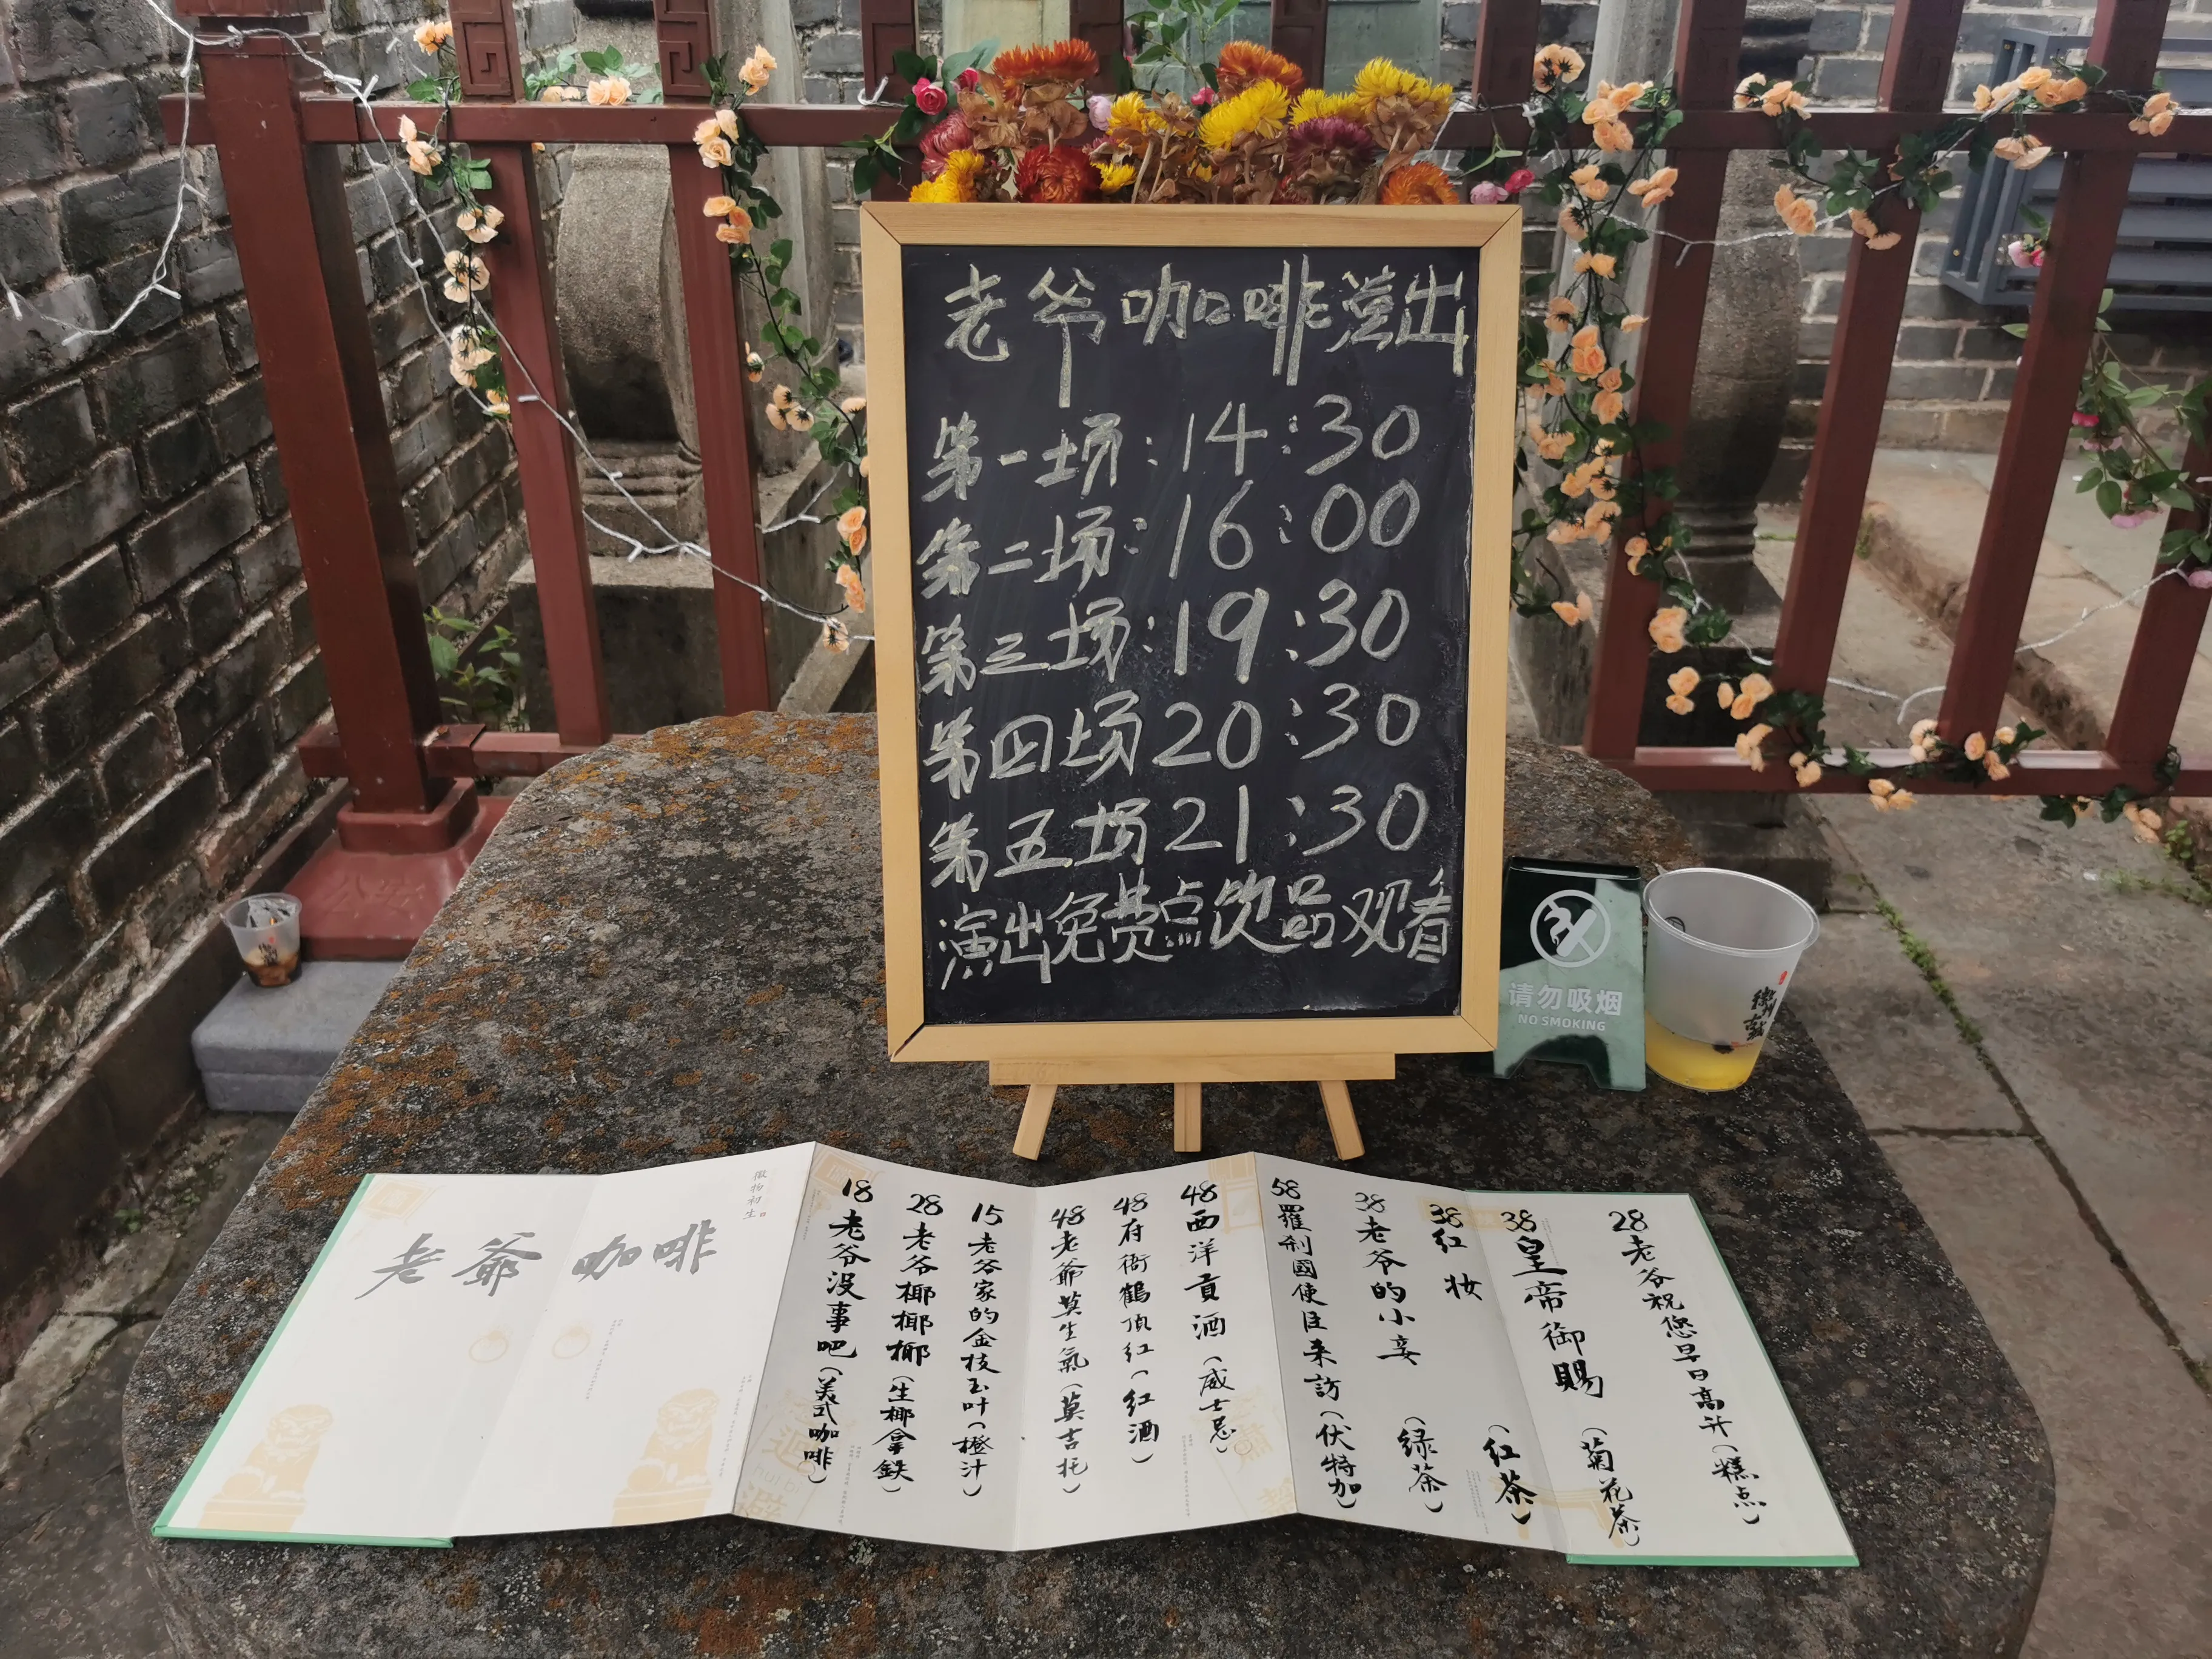 老爷咖啡演出
第一场:14:30
第二场:16:00
第三场:19:30
第四场20:30
第五场21:30
演出免费点饮品观看
请勿吸烟
NO SMOKING
老爺咖啡
徽物初生
18老爷没事吧(美式咖啡)
28老爷椰椰椰(生椰拿鉄)
15老爷家的金枝玉叶(橙汁)
48老爺莫生氣(莫吉托)
48府衙鶴顶红(红酒)
48西洋貢酒(威士忌)
58羅刹國使臣来訪(伏特加)
38老爷的小妾(绿茶)
38红妆(红茶)
38皇帝御賜(菊花茶)
28老爷祝您早日高升(糕点)